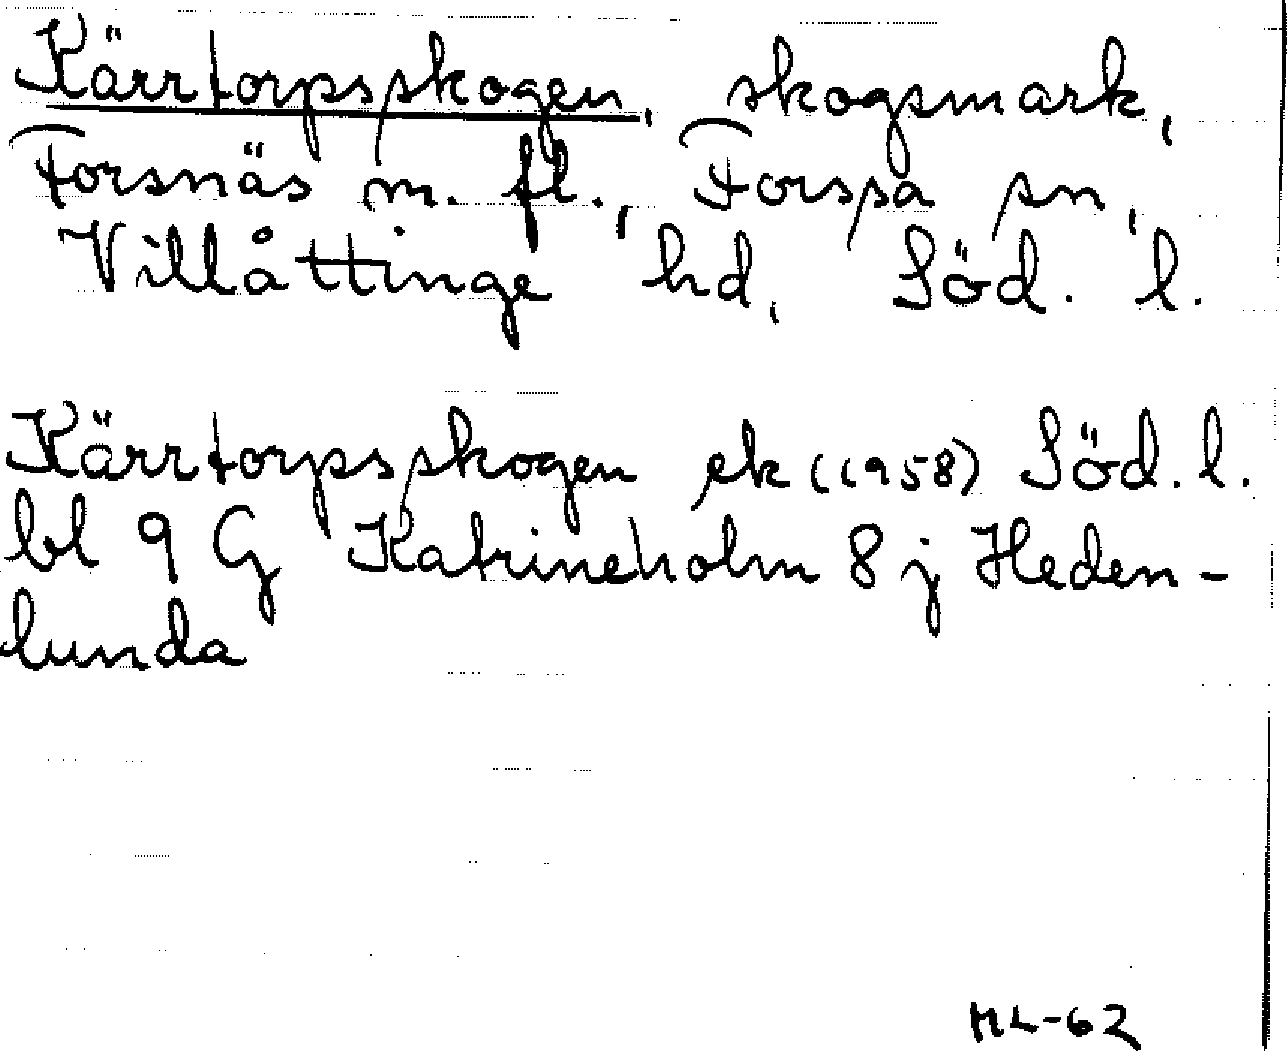 Kärrtorpsskogen, skogsmark,
Forsnäs m. fl., Forssa sn,
Villåttinge hd, Söd. l.
Kärrtorpsskogen ek (1958) Söd. l.
bl 9 G Katrineholm 8 j Heden-
lunda
ML-62